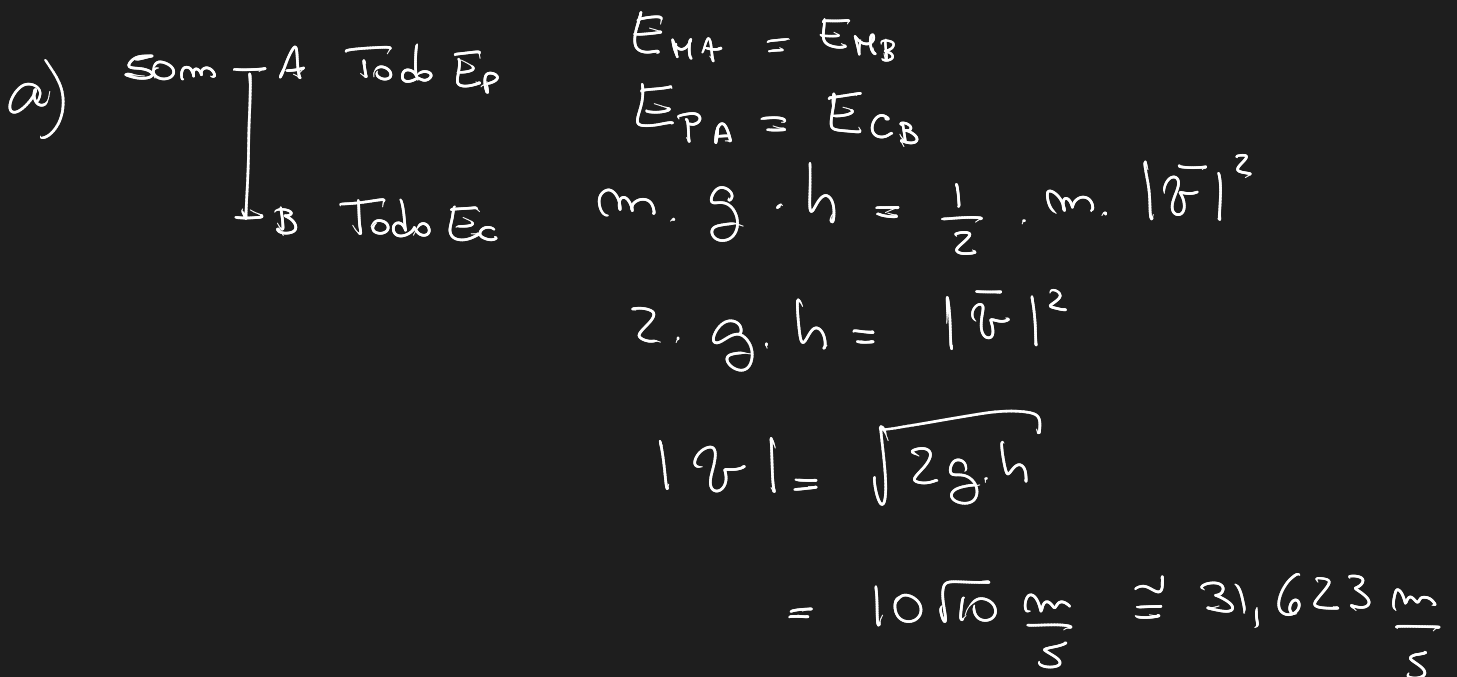 a) 50m A Todo Ep
B Todo Ec
E_MA = E_MB
E_PA = E_CB
m. g . h = 1/2 . m. |v̄|²
2. g. h = |v̄|²
|v| = √2g.h
= 10√10 m/s ≅ 31,623 m/s